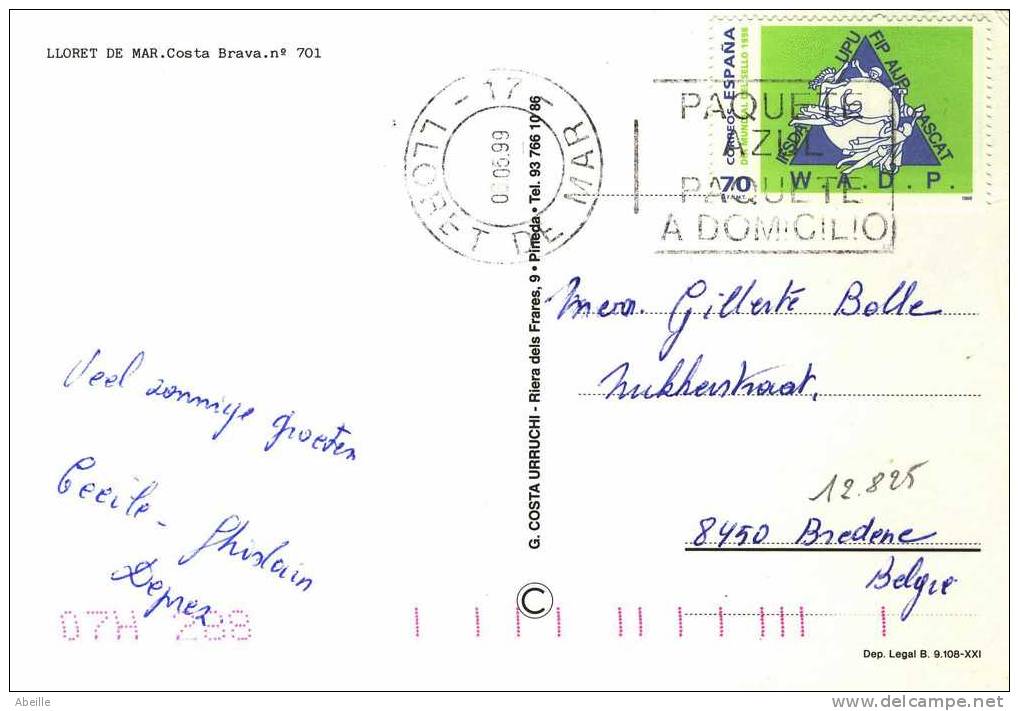 LLORET DE MAR.Costa Brava.nº 701
- 17 -
LLORET DE MAR
05.99
PAQUETE
AZUL
PAQUETE
A DOMICILIO
CORREOS ESPAÑA
DIA MUNDIAL DEL SELLO 1998
70
UPU
FIP
AIJP
ASCAT
IFSDA
W.A.D.P.
G. COSTA URRUCHI - Riera dels Frares, 9 • Pineda • Tel. 93 766 10 86
©
Veel zonnige groeten
Cecile - Ghislain
Deprez
Mevr. Gilberte Bolle
12.825
8450 Bredene
Belgie
07H 288
Dep. Legal B. 9.108-XXI
Abeille
www.delcampe.net